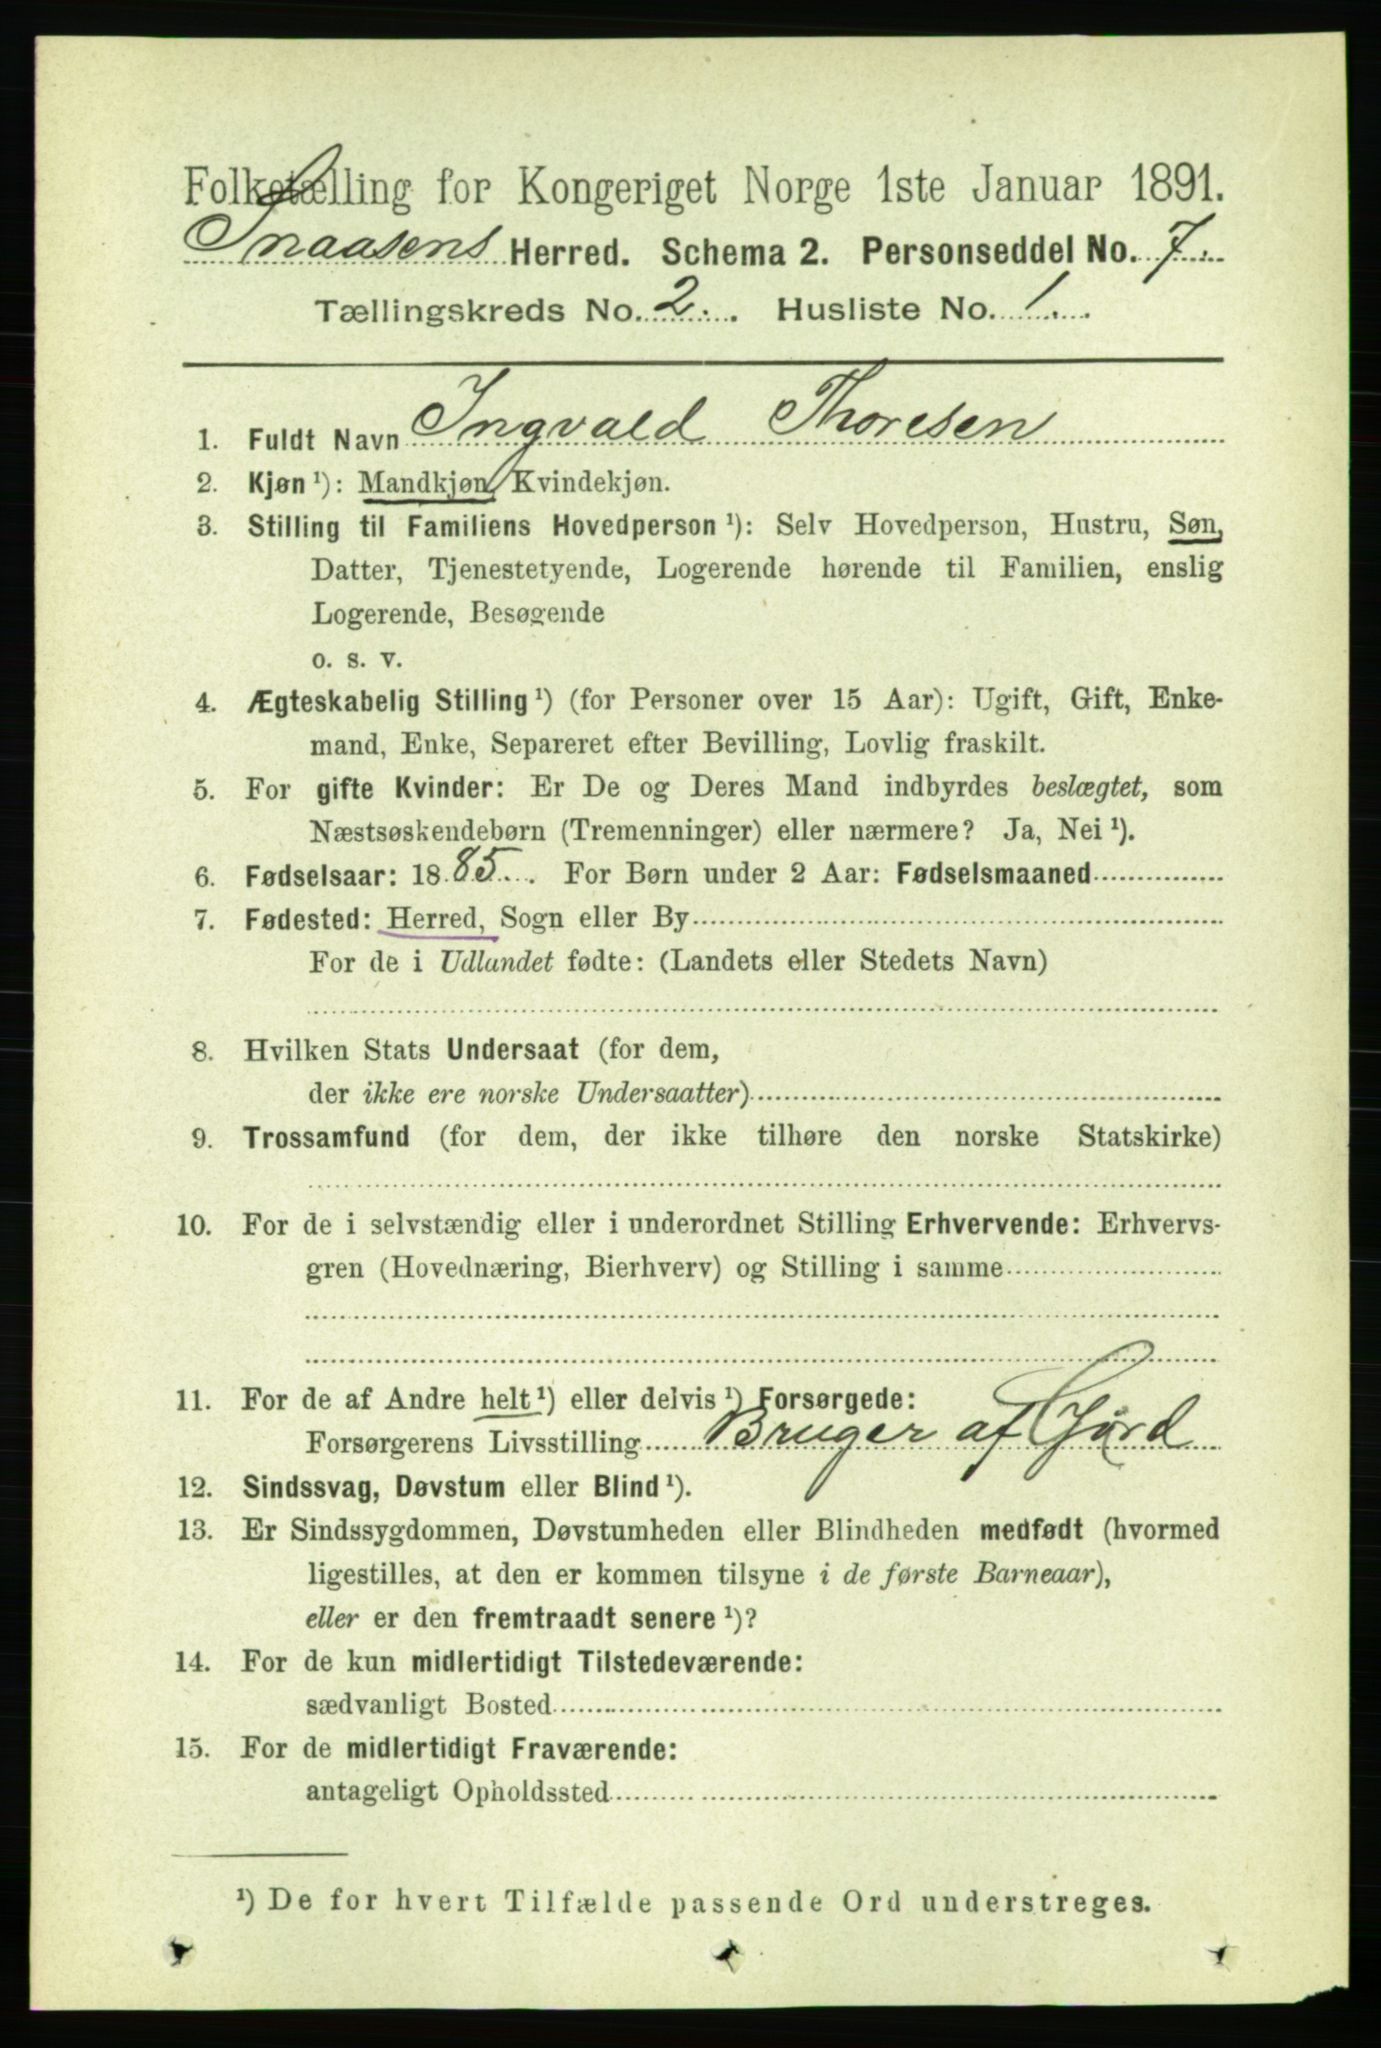 Folketælling for Kongeriget Norge 1ste Januar 1891.
Snaasens Herred. Schema 2. Personseddel No. 7.
Tællingskreds No. 2. Husliste No. 1.
1. Fuldt Navn Ingvald Thoresen
2. Kjøn ¹): Mandkjøn, Kvindekjøn.
3. Stilling til Familiens Hovedperson ¹): Selv Hovedperson, Hustru, Søn,
Datter, Tjenestetyende, Logerende hørende til Familien, enslig
Logerende, Besøgende
o. s. v.
4. Ægteskabelig Stilling ¹) (for Personer over 15 Aar): Ugift, Gift, Enke-
mand, Enke, Separeret efter Bevilling, Lovlig fraskilt.
5. For gifte Kvinder: Er De og Deres Mand indbyrdes beslægtet, som
Næstsøskendebørn (Tremenninger) eller nærmere? Ja, Nei ¹).
6. Fødselsaar: 1885. For Børn under 2 Aar: Fødselsmaaned
7. Fødested: Herred, Sogn eller By
For de i Udlandet fødte: (Landets eller Stedets Navn)
8. Hvilken Stats Undersaat (for dem,
der ikke ere norske Undersaatter)
9. Trossamfund (for dem, der ikke tilhøre den norske Statskirke)
10. For de i selvstændig eller i underordnet Stilling Erhvervende: Erhvervs-
gren (Hovednæring, Bierhverv) og Stilling i samme
11. For de af Andre helt ¹) eller delvis ¹) Forsørgede:
Forsørgerens Livsstilling Bruger af Jord
12. Sindssvag, Døvstum eller Blind ¹).
13. Er Sindssygdommen, Døvstumheden eller Blindheden medfødt (hvormed
ligestilles, at den er kommen tilsyne i de første Barneaar),
eller er den fremtraadt senere ¹)?
14. For de kun midlertidigt Tilstedeværende:
sædvanligt Bosted
15. For de midlertidigt Fraværende:
antageligt Opholdssted
¹) De for hvert Tilfælde passende Ord understreges.